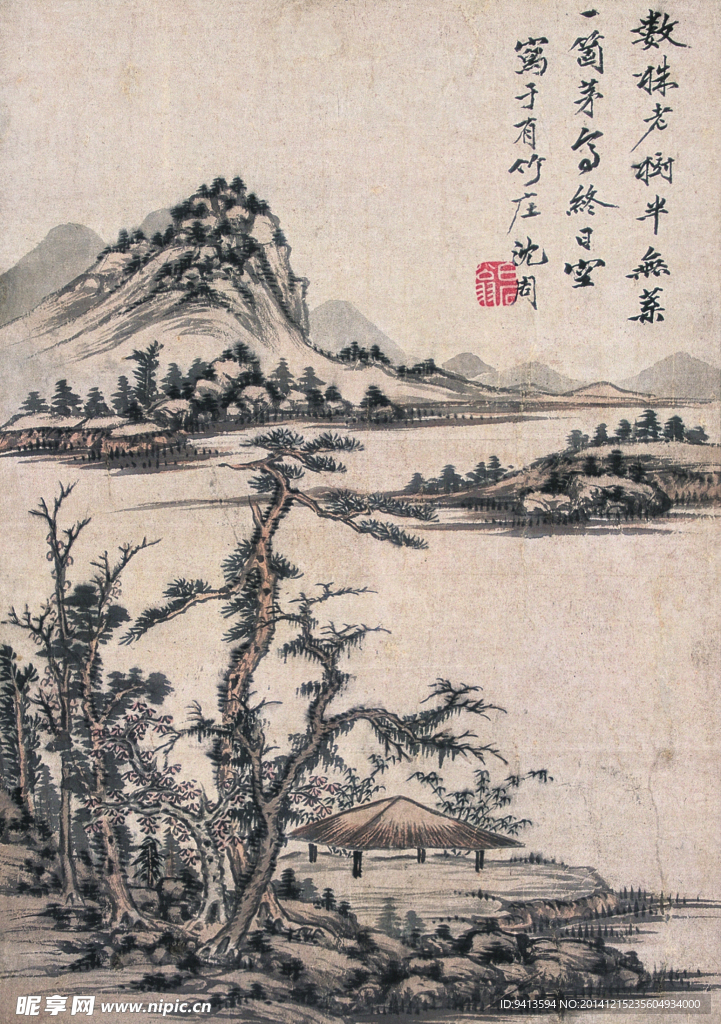 數株老樹半無葉
一箇茅亭終日空
寫于有竹庄 沈周
昵享网 www.nipic.cn
ID:9413594 NO:20141215235604934000